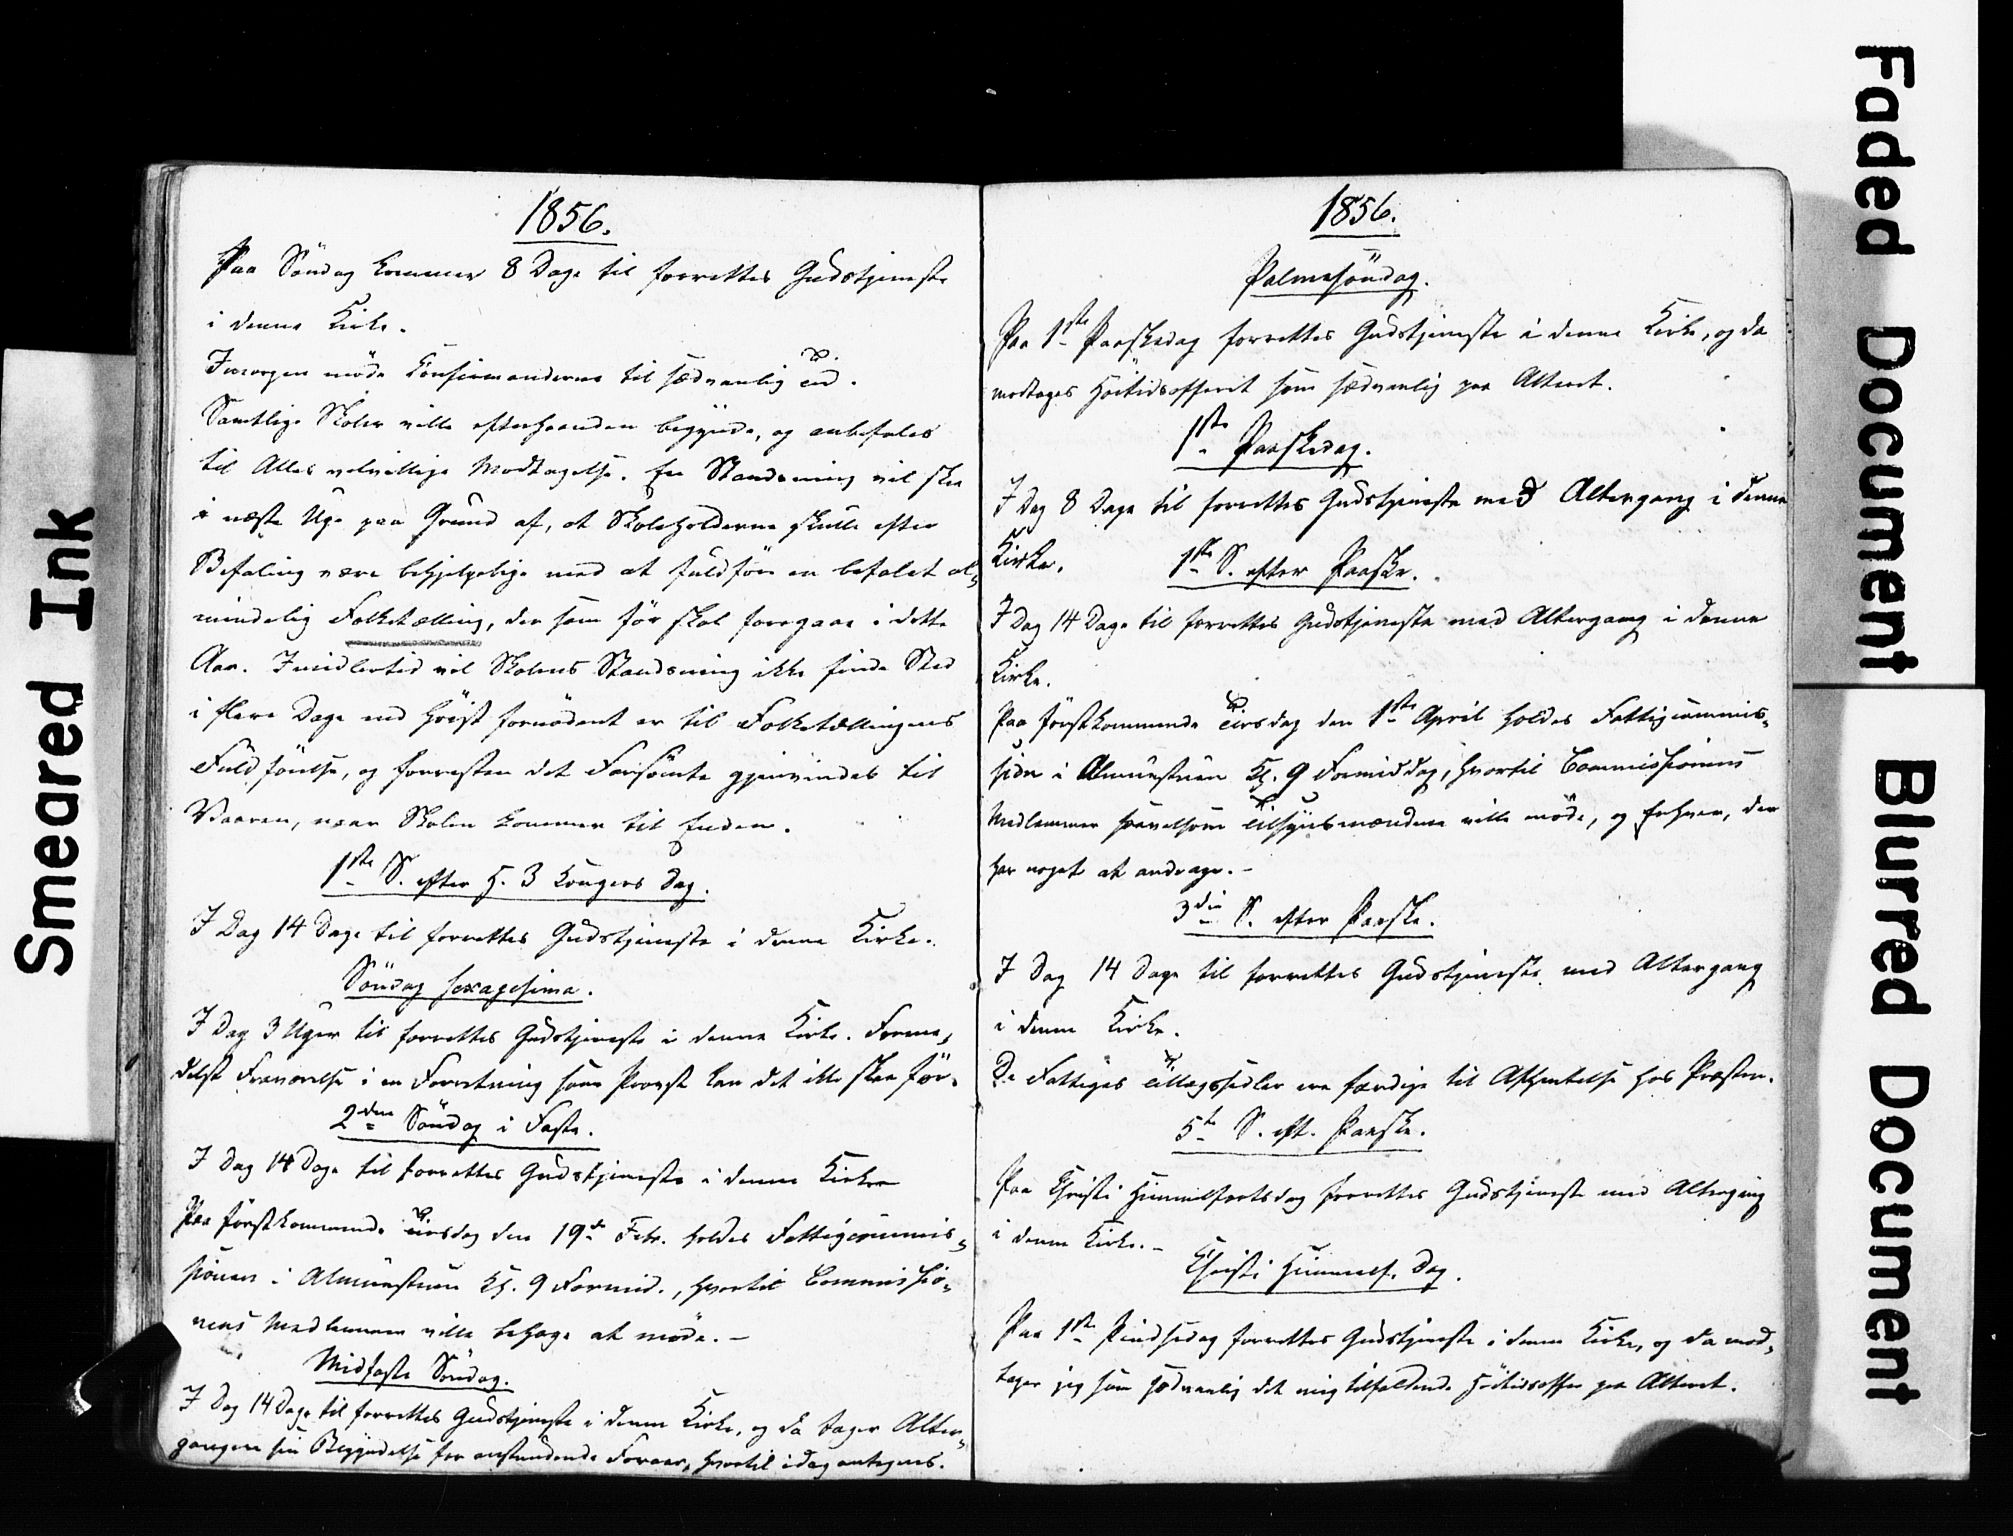 1856.
Paa Söndag kommer 8 Dage til forrettes Gudstjeneste
i denne Kirke.
Imorgen møde Confirmanderne til sædvanlig Tid.
Samtlige Skoler ville efterhaanden begynde, og anbefales
til Alles velvillige Modtagelse. En Standsning vil skee
i næste Uge paa Grund af, at Skoleholderne skulle efter
Befaling være behjelpelige med at fuldföre en befalet al-
mindelig Folketælling, der som för skal foregaae i dette
Aar. Imidlertid vil Skolens Standsning ikke finde Sted
i flere Dage end höist fornödent er til Folketællingens
Fuldförelse, og forresten det Forsömte gjenvindes til
Vaaren, naar Skolen kommer til Enden.
1ste S. efter H. 3 Kongers Dag.
I Dag 14 Dage til forrettes Gudstjeneste i denne Kirke.
Söndag Sexagesima.
I Dag 3 Uger til forrettes Gudstjeneste i denne Kirke. Forme-
delst Fraværelse i en Forretning som Provst kan det ikke skee för.
2den Söndag i Faste.
I Dag 14 Dage til forrettes Gudstjeneste i denne Kirke
Paa förstkommende Tirsdag den 19de Febr. holdes Fattigcommis-
sionen i Almuestuen Kl. 9 Formid., hvortil Commissio-
nens Medlemmer ville behage at møde. -
Midfaste Söndag.
I Dag 14 Dage til forrettes Gudstjeneste i denne Kirke, og da tager Alter-
gangen sin Begyndelse for anstundende Foraar, hvortil idag antegnes.
1856.
Palmesöndag.
Paa 1ste Paaskedag forrettes Gudstjeneste i denne Kirke, og da
modtages Höitidsofferet som sædvanlig paa Alteret.
1ste Paaskedag.
I Dag 8 Dage til forrettes Gudstjeneste med Altergang i denne
Kirke.
1ste S. efter Paaske.
I Dag 14 Dage til forrettes Gudstjeneste med Altergang i denne
Kirke.
Paa förstkommende Tirsdag den 1ste April holdes Fattigcommis-
sion i Almuestuen Kl. 9 Formiddag, hvortil Commissionens
Medlemmer saavelsom Tilsynsmændene ville möde, og Enhver, der
har noget at andrage. -
3die S. efter Paaske.
I Dag 14 Dage til forrettes Gudstjeneste med Altergang
i denne Kirke.
De Fattiges Tillægssedler ere færdige til Afhentelse hos Præsten.
5te S. eft. Paaske.
Paa Christi Himmelfartsdag forrettes Gudstjeneste med Altergang
i denne Kirke. -
Christi Himmelf. Dag.
Paa 1ste Pindsedag forrettes Gudstjeneste i denne Kirke, og da mod-
tager jeg som sædvanlig det mig tilfaldende Höitidsoffer paa Alteret.
Smeared Ink
Faded Document
Blurred Document